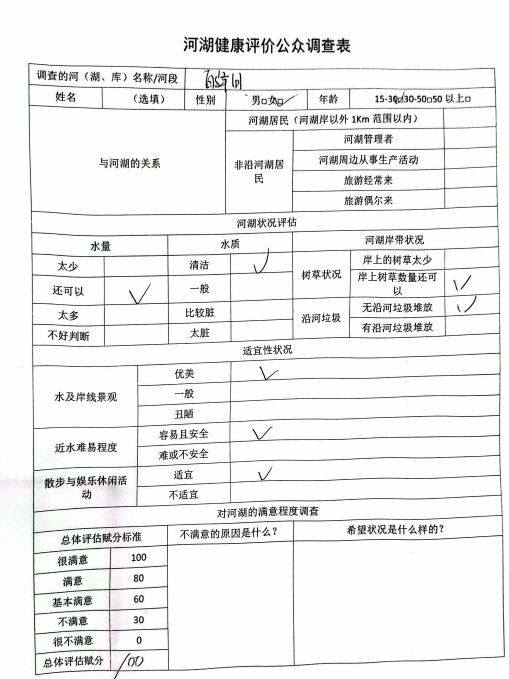 河湖健康评价公众调查表
调查的河（湖、库）名称/河段
姓名 （选填） 性别 男□女□✓ 年龄 15-30□✓30-50□50 以上□
与河湖的关系 河湖居民（河湖岸以外 1Km 范围以内）
非沿河湖居民 河湖管理者
河湖周边从事生产活动
旅游经常来
旅游偶尔来
河湖状况评估
水量 水质 河湖岸带状况
太少 清洁 ✓ 树草状况 岸上的树草太少
还可以 ✓ 一般 岸上树草数量还可以 ✓
太多 比较脏 沿河垃圾 无沿河垃圾堆放 ✓
不好判断 太脏 有沿河垃圾堆放
适宜性状况
水及岸线景观 优美 ✓
一般
丑陋
近水难易程度 容易且安全 ✓
难或不安全
散步与娱乐休闲活动 适宜 ✓
不适宜
对河湖的满意程度调查
总体评估赋分标准 不满意的原因是什么？ 希望状况是什么样的？
很满意 100
满意 80
基本满意 60
不满意 30
很不满意 0
总体评估赋分 100